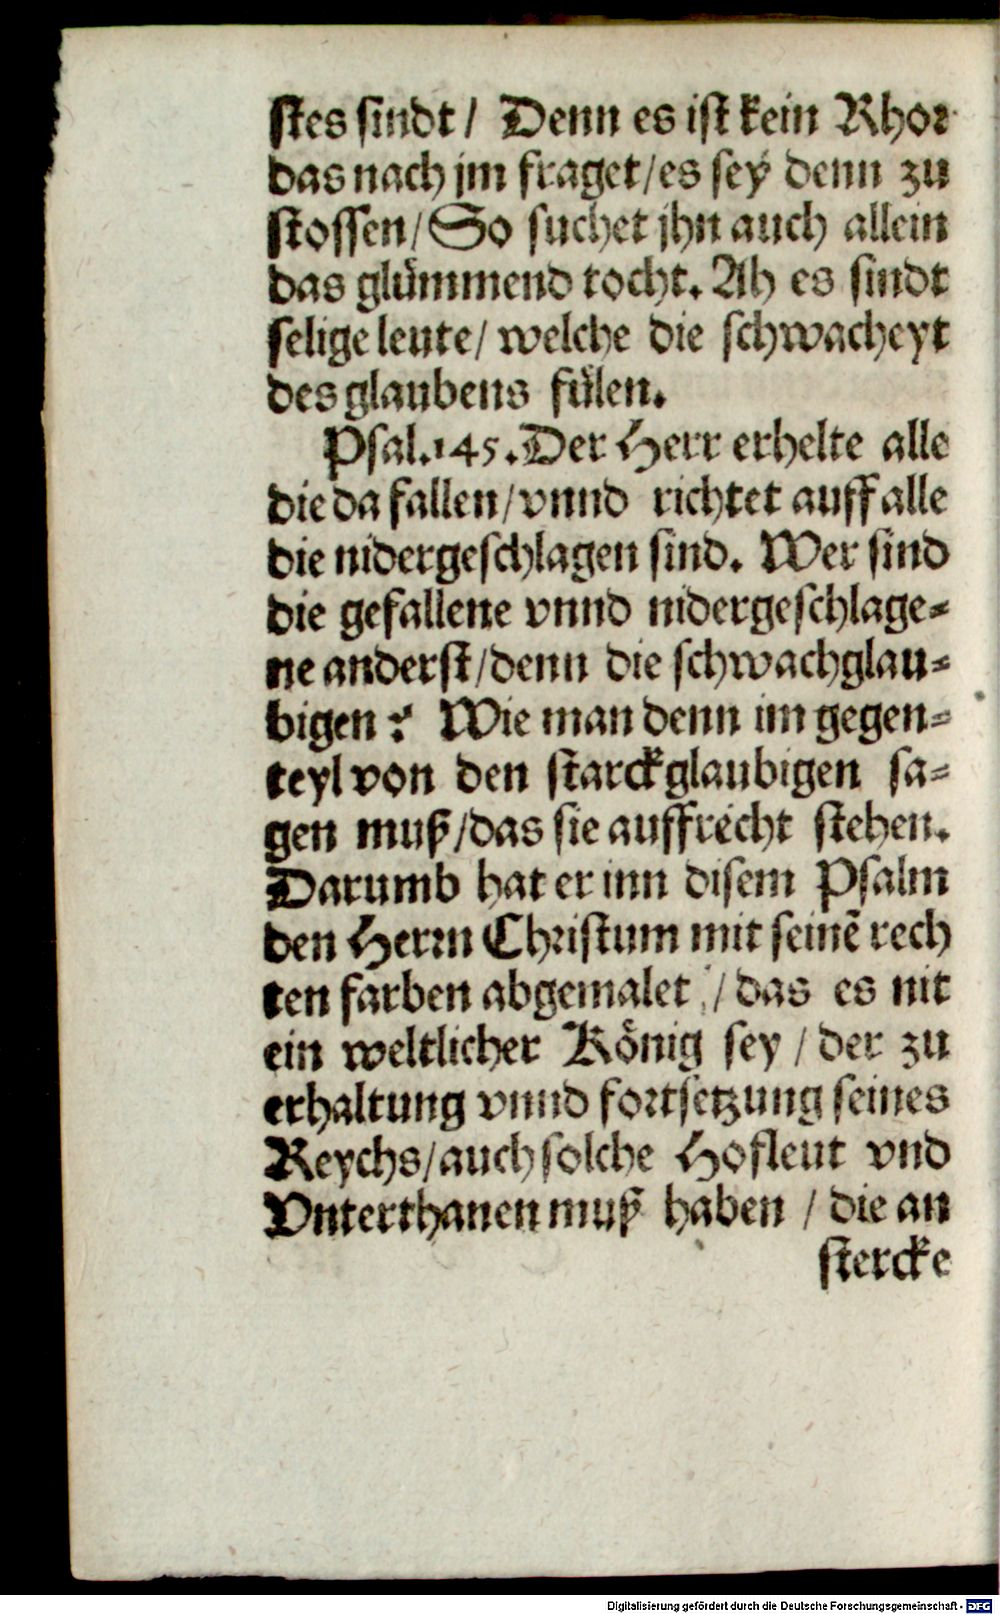 stes sindt / Denn es ist kein Rhor
das nach jm fraget / es sey denn zu
stossen / So suchet jhn auch allein
das glümmend tocht. Ah es sindt
selige leute / welche die schwacheyt
des glaubens fülen.
Psal. 145. Der Herr erhelte alle
die da fallen / vnnd richtet auff alle
die nidergeschlagen sind. Wer sind
die gefallene vnnd nidergeschlage=
ne anderst / denn die schwachglau=
bigen? Wie man denn im gegen=
teyl von den starckglaubigen sa=
gen muß / das sie auffrecht stehen.
Darumb hat er inn disem Psalm
den Herrn Christum mit seinē rech
ten farben abgemalet / das es nit
ein weltlicher König sey / der zu
erhaltung vnnd fortsetzung seines
Reychs / auch solche Hofleut vnd
Vnterthanen muß haben / die an
stercke
Digitalisierung gefördert durch die Deutsche Forschungsgemeinschaft - DFG